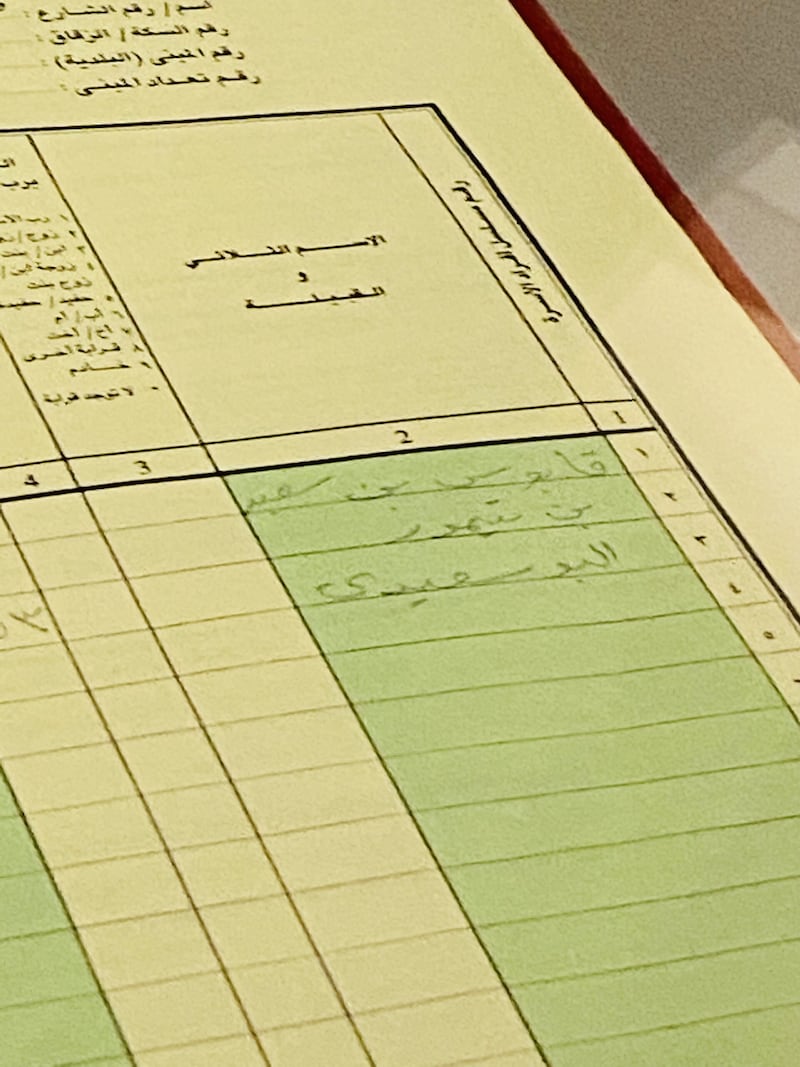 اسم / رقم الشارع :
رقم السكة / الزقاق :
رقم المبنى (البلدية) :
رقم تعداد المبنى :
رقم مسلسل افراد الاسرة
الاســم الثــلاثي
و
القبيلــة
١ رب الأ
٢ زوج / زو
٣ ابن / بنت
٤ زوجة ابن /
زوج بنت
٥ حفيد / حفيدة
٦ أب / أم
٧ أخ / أخت
٨ قرابة أخرى
٩ خــادم
٠ لا توجد قرابة
1 2 3 4
١ قابوس بن سعيد
٢ بن تيمور
٣ البوسعيدي
٤
٥